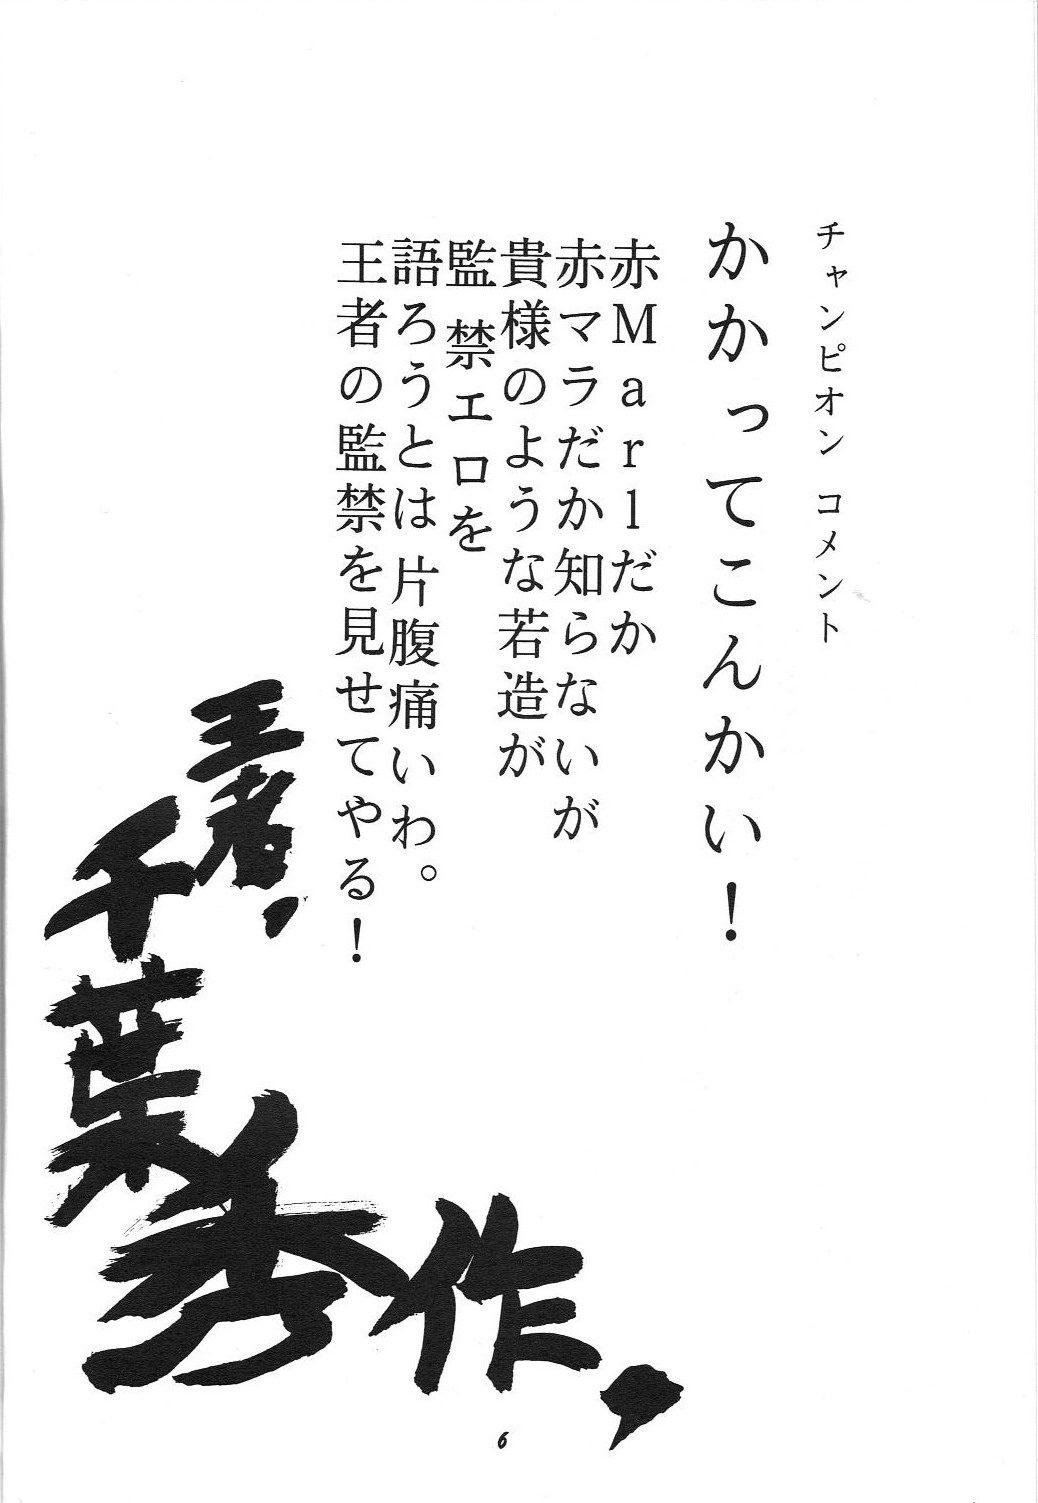 チャンピオン コメント
かかってこんかい！
赤Marlだか
赤マラだか知らないが
貴様のような若造が
監禁エロを
語ろうとは片腹痛いわ。
王者の監禁を見せてやる！
王者、
千葉秀作、
6